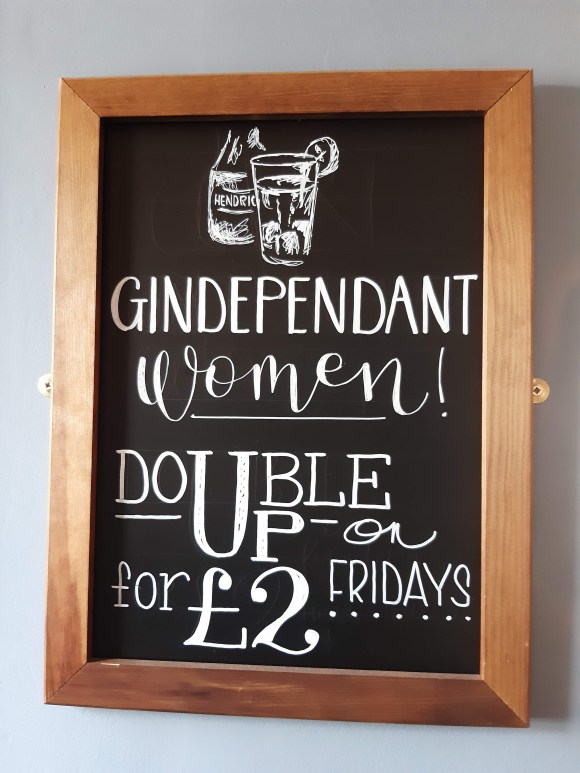 HENDRIC
GINDEPENDANT
women!
DOUBLE
UP-on
for £2 FRIDAYS